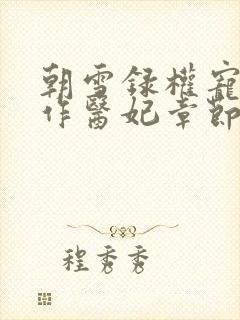 朝雪録權寵
作醫妃章節
程秀秀